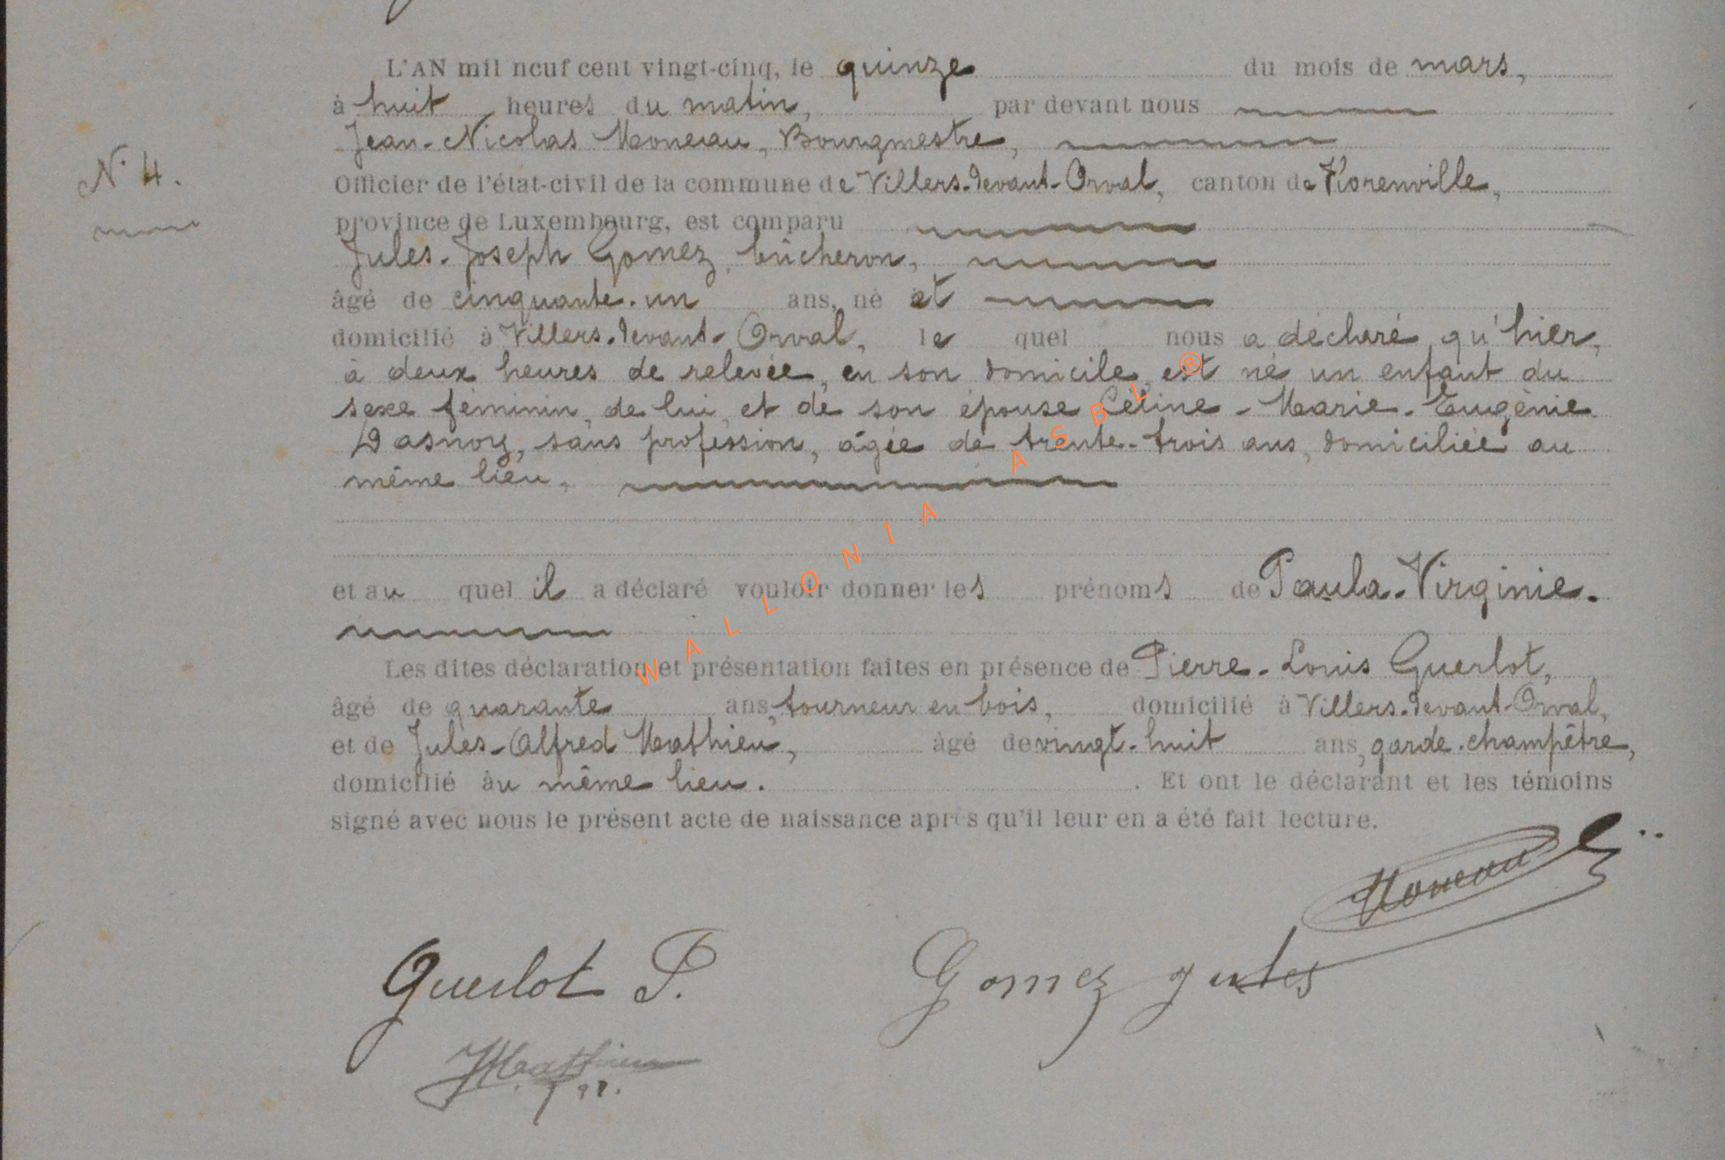 L'AN mil neuf cent vingt-cinq, le quinze du mois de mars,
à huit heures du matin, par devant nous
Jean-Nicolas Moneau, Bourgmestre,
N° 4.
Officier de l'état-civil de la commune de Villers-devant-Orval, canton de Florenville,
province de Luxembourg, est comparu
Jules-Joseph Gomez, bûcheron,
âgé de cinquante-un ans, né et
domicilié à Villers-devant-Orval, le quel nous a déclaré qu'hier,
à deux heures de relevée, en son domicile, est né un enfant du
sexe féminin, de lui et de son épouse Céline-Marie-Eugénie
Dasnoy, sans profession, âgée de trente-trois ans, domiciliée au
même lieu,
et au quel il a déclaré vouloir donner les prénoms de Paula-Virginie.
Les dites déclaration et présentation faites en présence de Pierre-Louis Guerlot,
âgé de quarante ans, tourneur en bois, domicilié à Villers-devant-Orval,
et de Jules-Alfred Mathieu, âgé de vingt-huit ans, garde-champêtre,
domicilié au même lieu. Et ont le déclarant et les témoins
signé avec nous le présent acte de naissance après qu'il leur en a été fait lecture.
Moneau
Guerlot P. Gomez Jules
JMathieu
WALLONIA ASBL ®